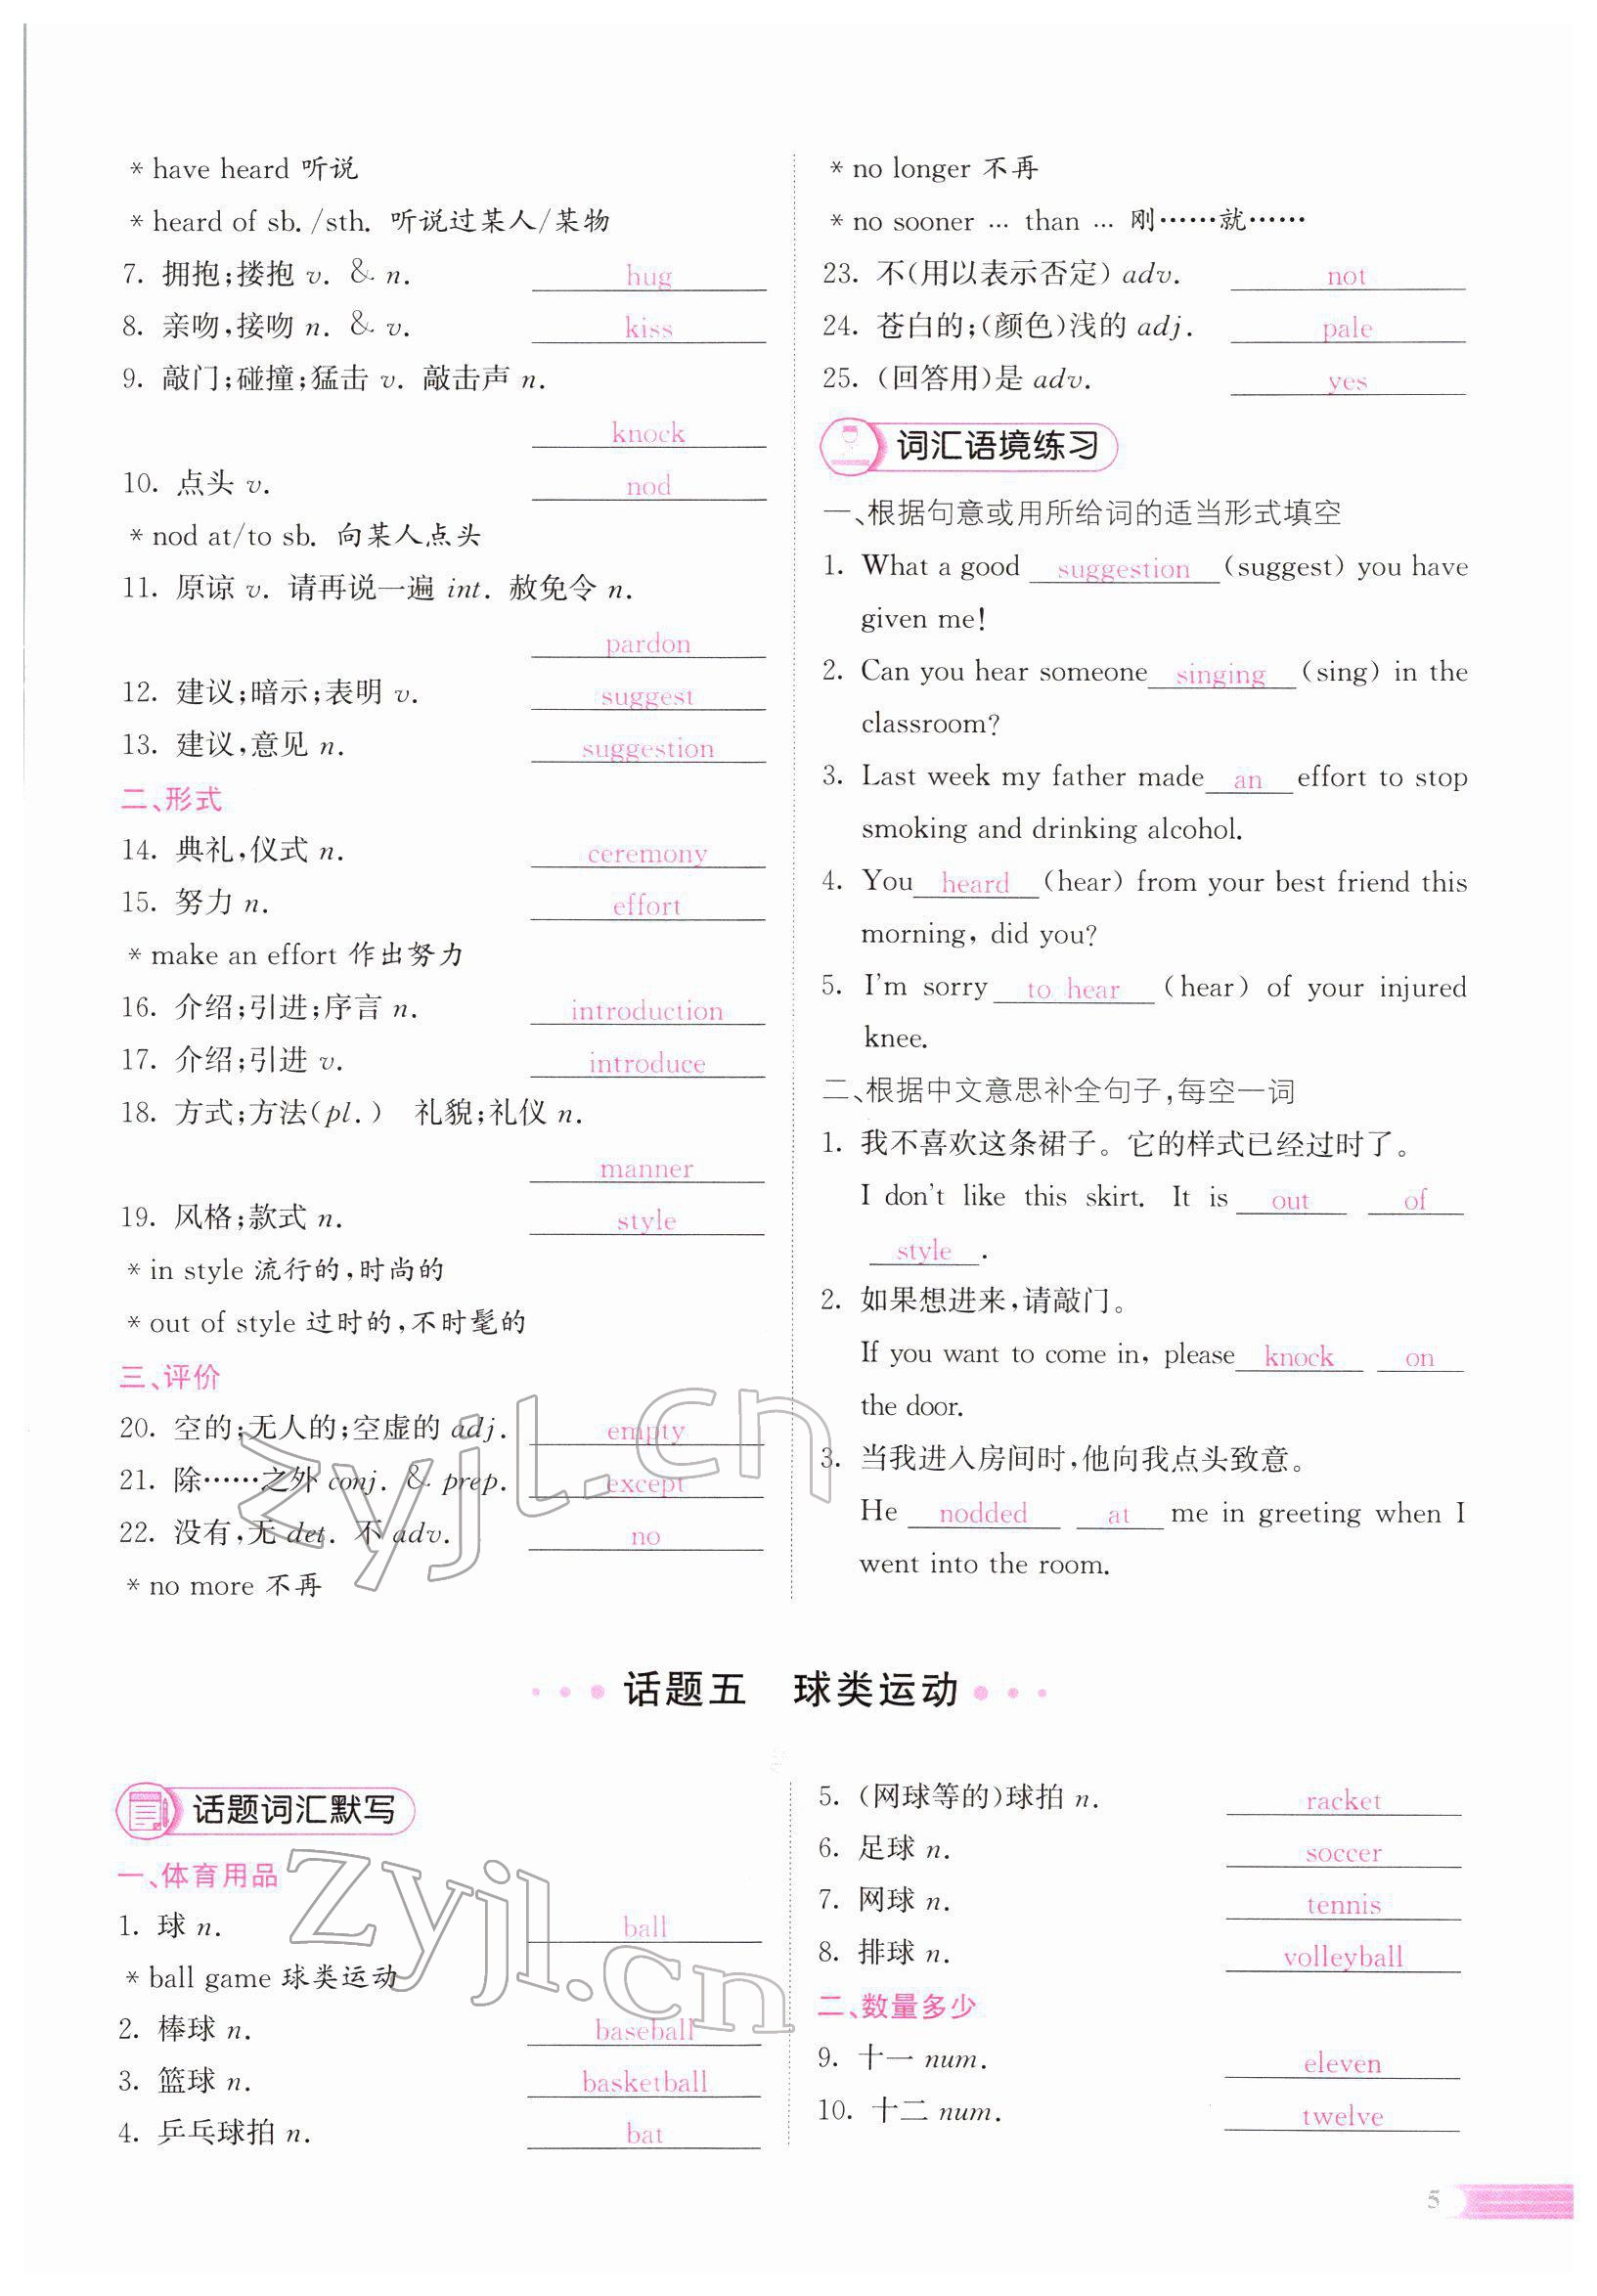 * have heard 听说
* heard of sb. /sth. 听说过某人/某物
7. 拥抱;搂抱 v. & n. hug
8. 亲吻,接吻 n. & v. kiss
9. 敲门;碰撞;猛击 v. 敲击声 n.
knock
10. 点头 v. nod
* nod at/to sb. 向某人点头
11. 原谅 v. 请再说一遍 int. 赦免令 n.
pardon
12. 建议;暗示;表明 v. suggest
13. 建议,意见 n. suggestion
二、形式
14. 典礼,仪式 n. ceremony
15. 努力 n. effort
* make an effort 作出努力
16. 介绍;引进;序言 n. introduction
17. 介绍;引进 v. introduce
18. 方式;方法(pl.) 礼貌;礼仪 n.
manner
19. 风格;款式 n. style
* in style 流行的,时尚的
* out of style 过时的,不时髦的
三、评价
20. 空的;无人的;空虚的 adj. empty
21. 除……之外 conj. & prep. except
22. 没有,无 det. 不 adv. no
* no more 不再
* no longer 不再
* no sooner … than … 刚……就……
23. 不(用以表示否定) adv. not
24. 苍白的;(颜色)浅的 adj. pale
25. (回答用)是 adv. yes
词汇语境练习
一、根据句意或用所给词的适当形式填空
1. What a good suggestion (suggest) you have
given me!
2. Can you hear someone singing (sing) in the
classroom?
3. Last week my father made an effort to stop
smoking and drinking alcohol.
4. You heard (hear) from your best friend this
morning, did you?
5. I'm sorry to hear (hear) of your injured
knee.
二、根据中文意思补全句子,每空一词
1. 我不喜欢这条裙子。它的样式已经过时了。
I don't like this skirt. It is out of
style .
2. 如果想进来,请敲门。
If you want to come in, please knock on
the door.
3. 当我进入房间时,他向我点头致意。
He nodded at me in greeting when I
went into the room.
话题五 球类运动
话题词汇默写
一、体育用品
1. 球 n. ball
* ball game 球类运动
2. 棒球 n. baseball
3. 篮球 n. basketball
4. 乒乓球拍 n. bat
5. (网球等的)球拍 n. racket
6. 足球 n. soccer
7. 网球 n. tennis
8. 排球 n. volleyball
二、数量多少
9. 十一 num. eleven
10. 十二 num. twelve
5
zyjl.cn
zyjl.cn